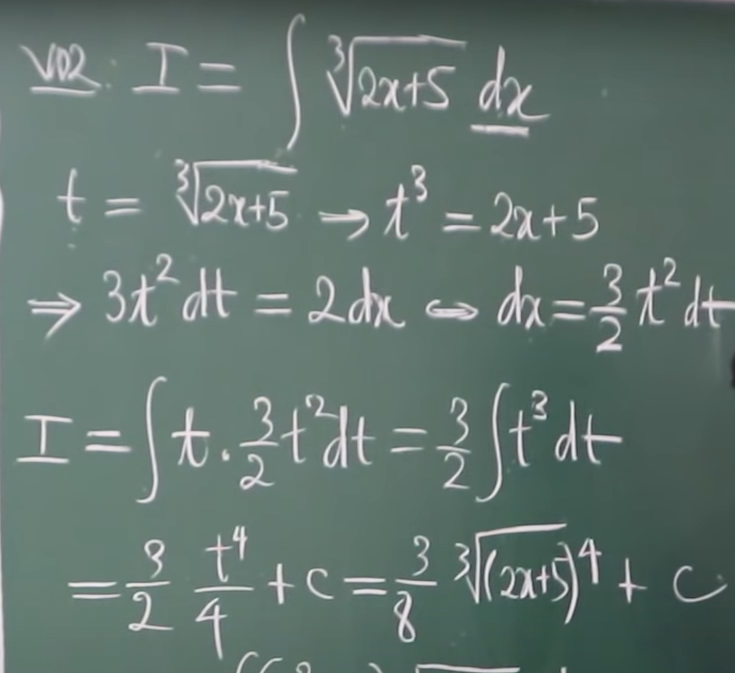 VD2: I = ∫ ∛(2x+5) dx
t = ∛(2x+5) → t³ = 2x+5
⇒ 3t²dt = 2dx ⇔ dx = 3/2 t²dt
I = ∫ t . 3/2 t²dt = 3/2 ∫ t³ dt
= 3/2 t⁴/4 + C = 3/8 ∛(2x+5)⁴ + C